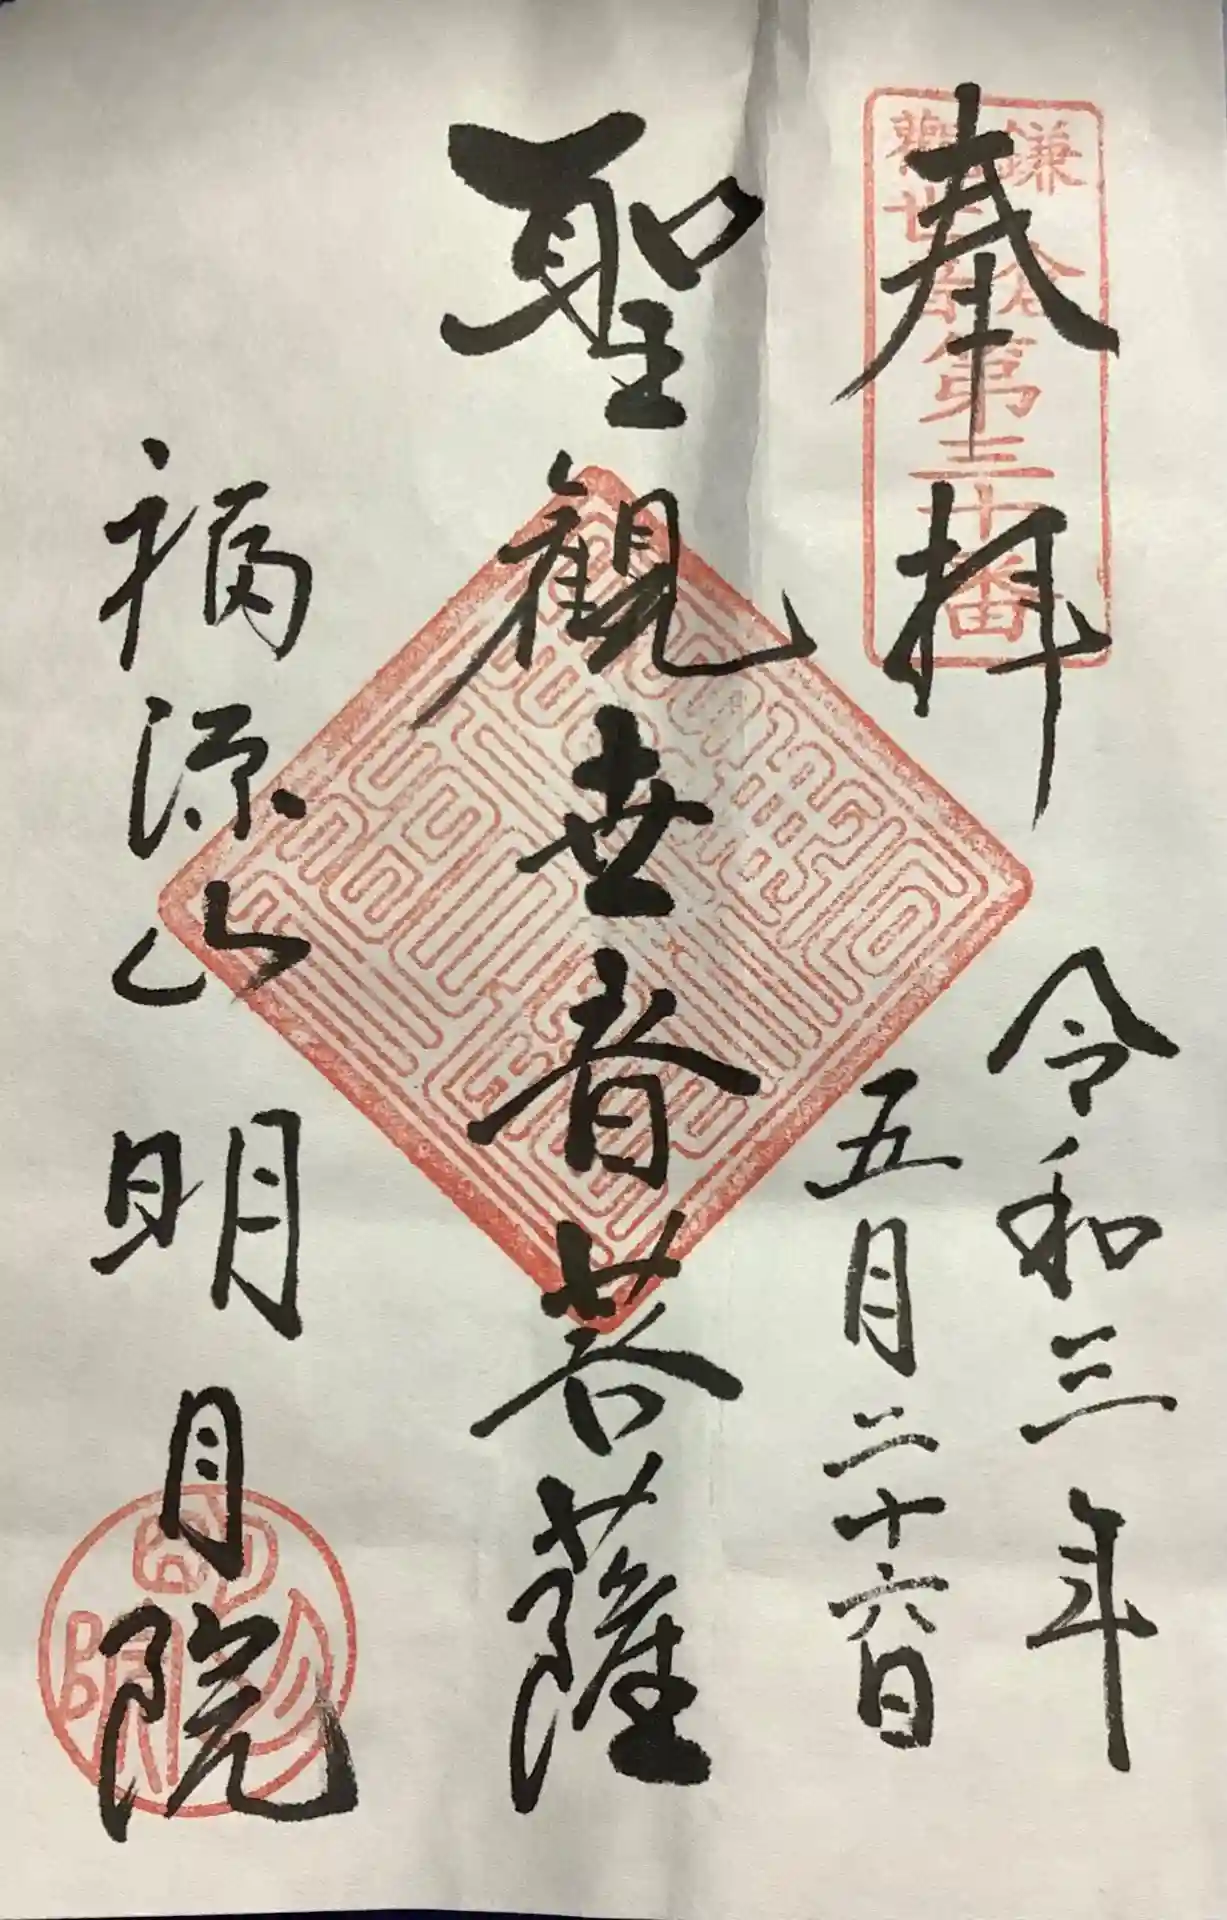 奉拝
鎌倉
觀世音
第三十番
令和三年
五月二十六日
聖觀世音菩薩
福源山
明月院